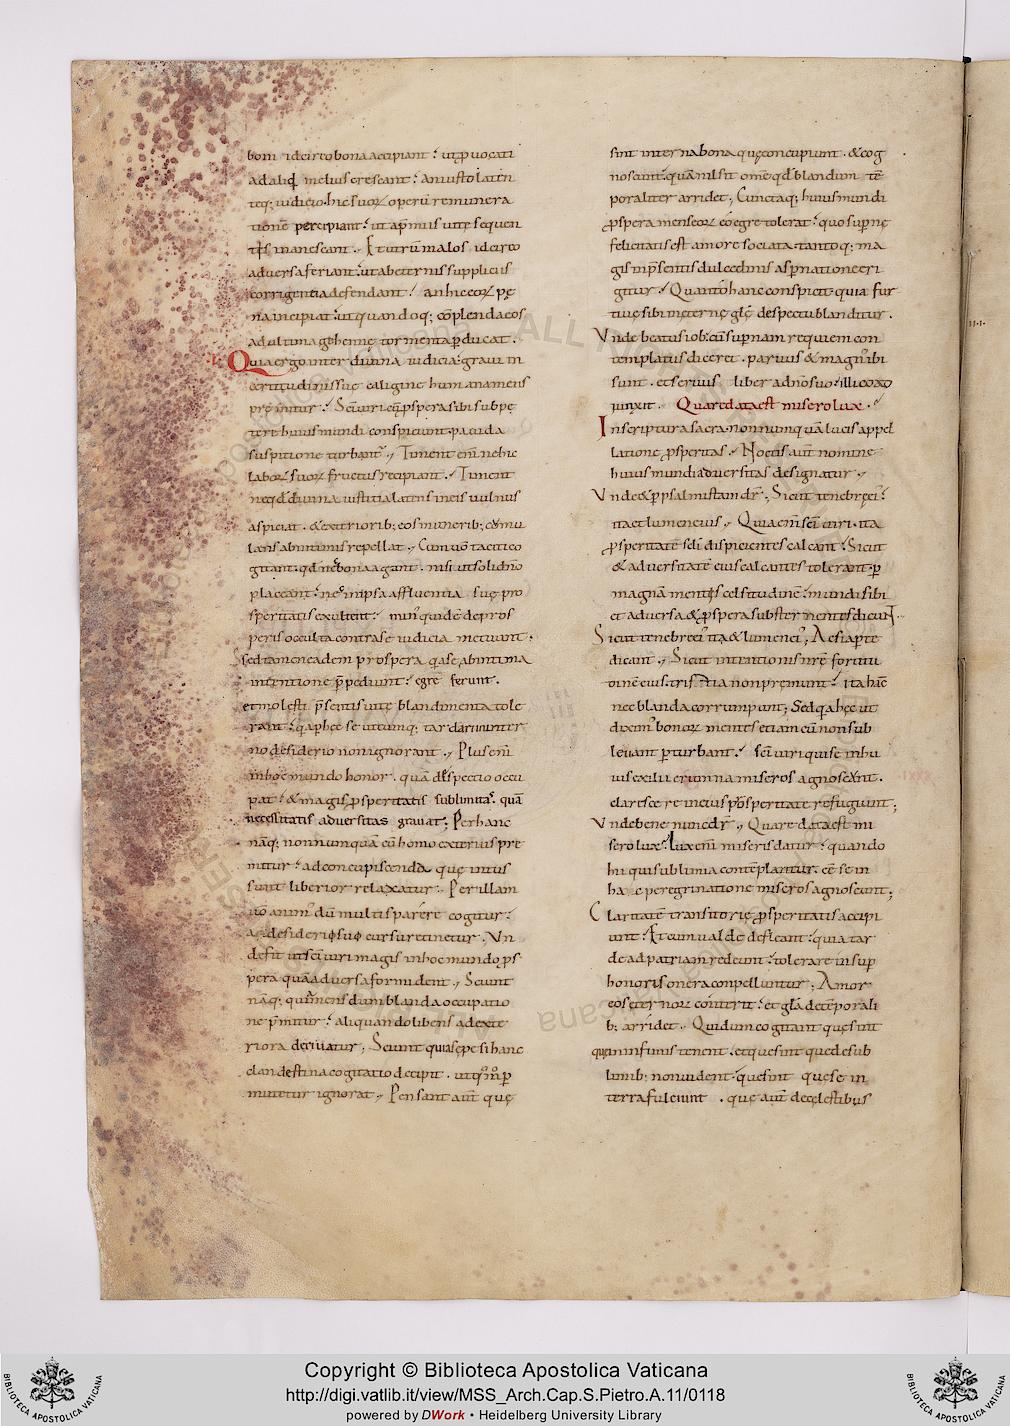 boni idcirco bona accipiant? ut ꝑuocati
ad aliq̄ melius crescant? an iusto laten
teq; iudicio hic suoꝝ operū remunera
tionē percipiant? ut a p̄miis uitę sequen
tis inanescant. Et utrū malos idcirco
aduersa feriant? ut ab eternis suppliciis
corrigentia defendant? an hic eoꝝ pę
na incipiat? ut quandoq; cōplenda eos
ad ultima gehennę tormenta ꝑducat.
Quia ergo inter diuina iudicia graui in
certitudinis suę caligine humana mens
pręmitur? Sc̄i uiri cū ꝓspera sibi subpę
tere huius mundi conspiciunt pauida
suspitione turbant᷑. Timent eni ne hic
laboꝝ suoꝝ fructus recipiant. Timent
ne qđ diuina iustitia latens in eis uulnus
aspiciat. & exteriorib; eos munerib; cumu
lans ab intimis repellat. Cum uō tacite co
gitant qđ nec bona agant. nisi ut soli dn̄o
placeant? nec in ipsa affluentia suę pro
speritatis exultent? minus quidē de pros
peris occulta contra se iudicia metuunt.
Sed tamen eadem prospera q̄a se ab intima
intentione p̄pediunt? egrę ferunt.
et molesti p̄sentis uitę blandimenta tole
rant? q̄a ꝑ hęc se utcumq; tardari in inter
no desiderio non ignorant. Plus eni
in hoc mundo honor. quā despectio occu
pat? & magis ꝓsperitatis sublimitas. quā
necessitatis aduersitas grauat; Per hanc
nāq; nonnunquā cū homo exterius pre
mitur? ad concupiscenda quę intus
sunt liberior relaxatur. Per illam
uō animus dū multis parére cogitur?
a desiderii sui cursu retinetur. Un
de fit ut sc̄i uiri magis in hoc mundo ꝓs
pera quā aduersa formident. Sciunt
nāq; quia mens dum blanda occupatio
ne p̄mitur? aliquando libens ad exte
riora deriuatur; Sciunt quia sępe sic hanc
clandestina cogitatio decipit. ut quō ꝑ
mutetur ignorat. Pensant aut quę
sint interna bona quę concupiunt. & cog
noscunt quā nil sit omē qđ blandum tē
poraliter arridet; Cunctaq; huius mundi
ꝓspera mens eoꝝ eo egre tolerat? quo supnę
felicitatis est amore sociata. tantoq; ma
gis in p̄sentis dulcedinis aspnatione eri
gitur? Quanto hanc conspicit quia fur
tiuę sibi in ęternę gl̄ę despectu blanditur.
Unde beatus iob. cū supnam requiem con
templatus diceret. paruus & magnus ibi
sunt. et seruus liber a dn̄o suo? illico ad
iunxit. Quare data est misero lux.
In scriptura sacra nonnumquā lucis appel
latione ꝓsperitas. Noctis aut nomine
huius mundi aduersitas designatur.
Unde & ꝑ psalmistam dr̄; Sicut tenebrę eius?
ita et lumen eius. Quia eni sc̄i uiri. ita
ꝓsperitatē sc̄li dispicientes calcant? Sicut
& aduersitatē eius calcantes tolerant. ꝑ
magnā mentis celsitudinē? mundi sibi
et aduersa & ꝓspera substernentes dicunt.
Sicut tenebrę eius ita & lumen eius; Ac si aꝑte
dicant. Sicut intentionis nr̄ę fortitu
dinē eius tristia non premunt? ita hāc
nec blanda corrumpunt; Sed q̄a hęc ut
diximus bonoꝝ mentes etiam cū non sub
leuant ꝑturbant? sc̄i uiri qui se in hu
ius exilii erumna miseros agnoscunt.
clarescere in eius prosperitate refugiunt;
Unde bene nunc dr̄. Quare data est mi
sero lux? Lux eni miseris datur? quando
hii qui sublimia contēplantur. cē se in
hac peregrinatione miseros agnoscunt;
Claritatē transitorię ꝓsperitatis accipi
unt? Et cum ualde defleant? quia tar
de ad patriam redeunt? tolerare insup
honoris onera conpelluntur; Amor
eos eternoꝝ conterit? et gl̄a de tēporali
b; arridet. Qui dum cogitant quę sint
quę in infimis tenent. et quę sint quę de sub
limib; non uident. quę sint quę se in
terra fulciunt. quę aut de cęlestibus
II·I·
Copyright © Biblioteca Apostolica Vaticana
http://digi.vatlib.it/view/MSS_Arch.Cap.S.Pietro.A.11/0118
powered by DWork • Heidelberg University Library
BIBLIOTECA APOSTOLICA VATICANA
BIBLIOTECA APOSTOLICA VATICANA